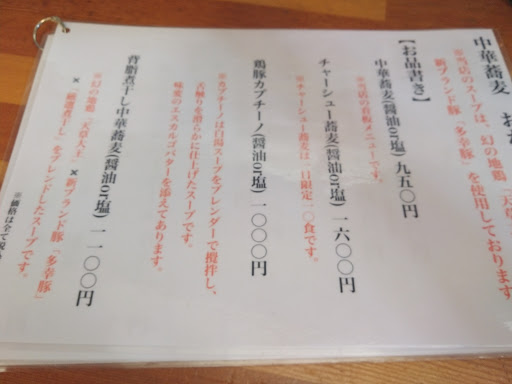 中華蕎麦 お
※当店のスープは、幻の地鶏「天草
新ブランド豚「多幸豚」を使用しております
【お品書き】
中華蕎麦(醤油or塩) 九五〇円
※当店の看板メニューです。
チャーシュー蕎麦(醤油or塩) 一六〇〇円
※チャーシュー蕎麦は一日限定一〇食です。
鶏豚カプチーノ(醤油or塩) 一〇〇〇円
※カプチーノは白湯スープをブレンダーで攪拌し、
舌触りを滑らかに仕上げたスープです。
味変のエスカルゴバターを添えてあります。
背脂煮干し中華蕎麦(醤油or塩) 一一〇〇円
※幻の地鶏「天草大王」×新ブランド豚「多幸豚」
×「厳選煮干し」をブレンドしたスープです。
※価格は全て税